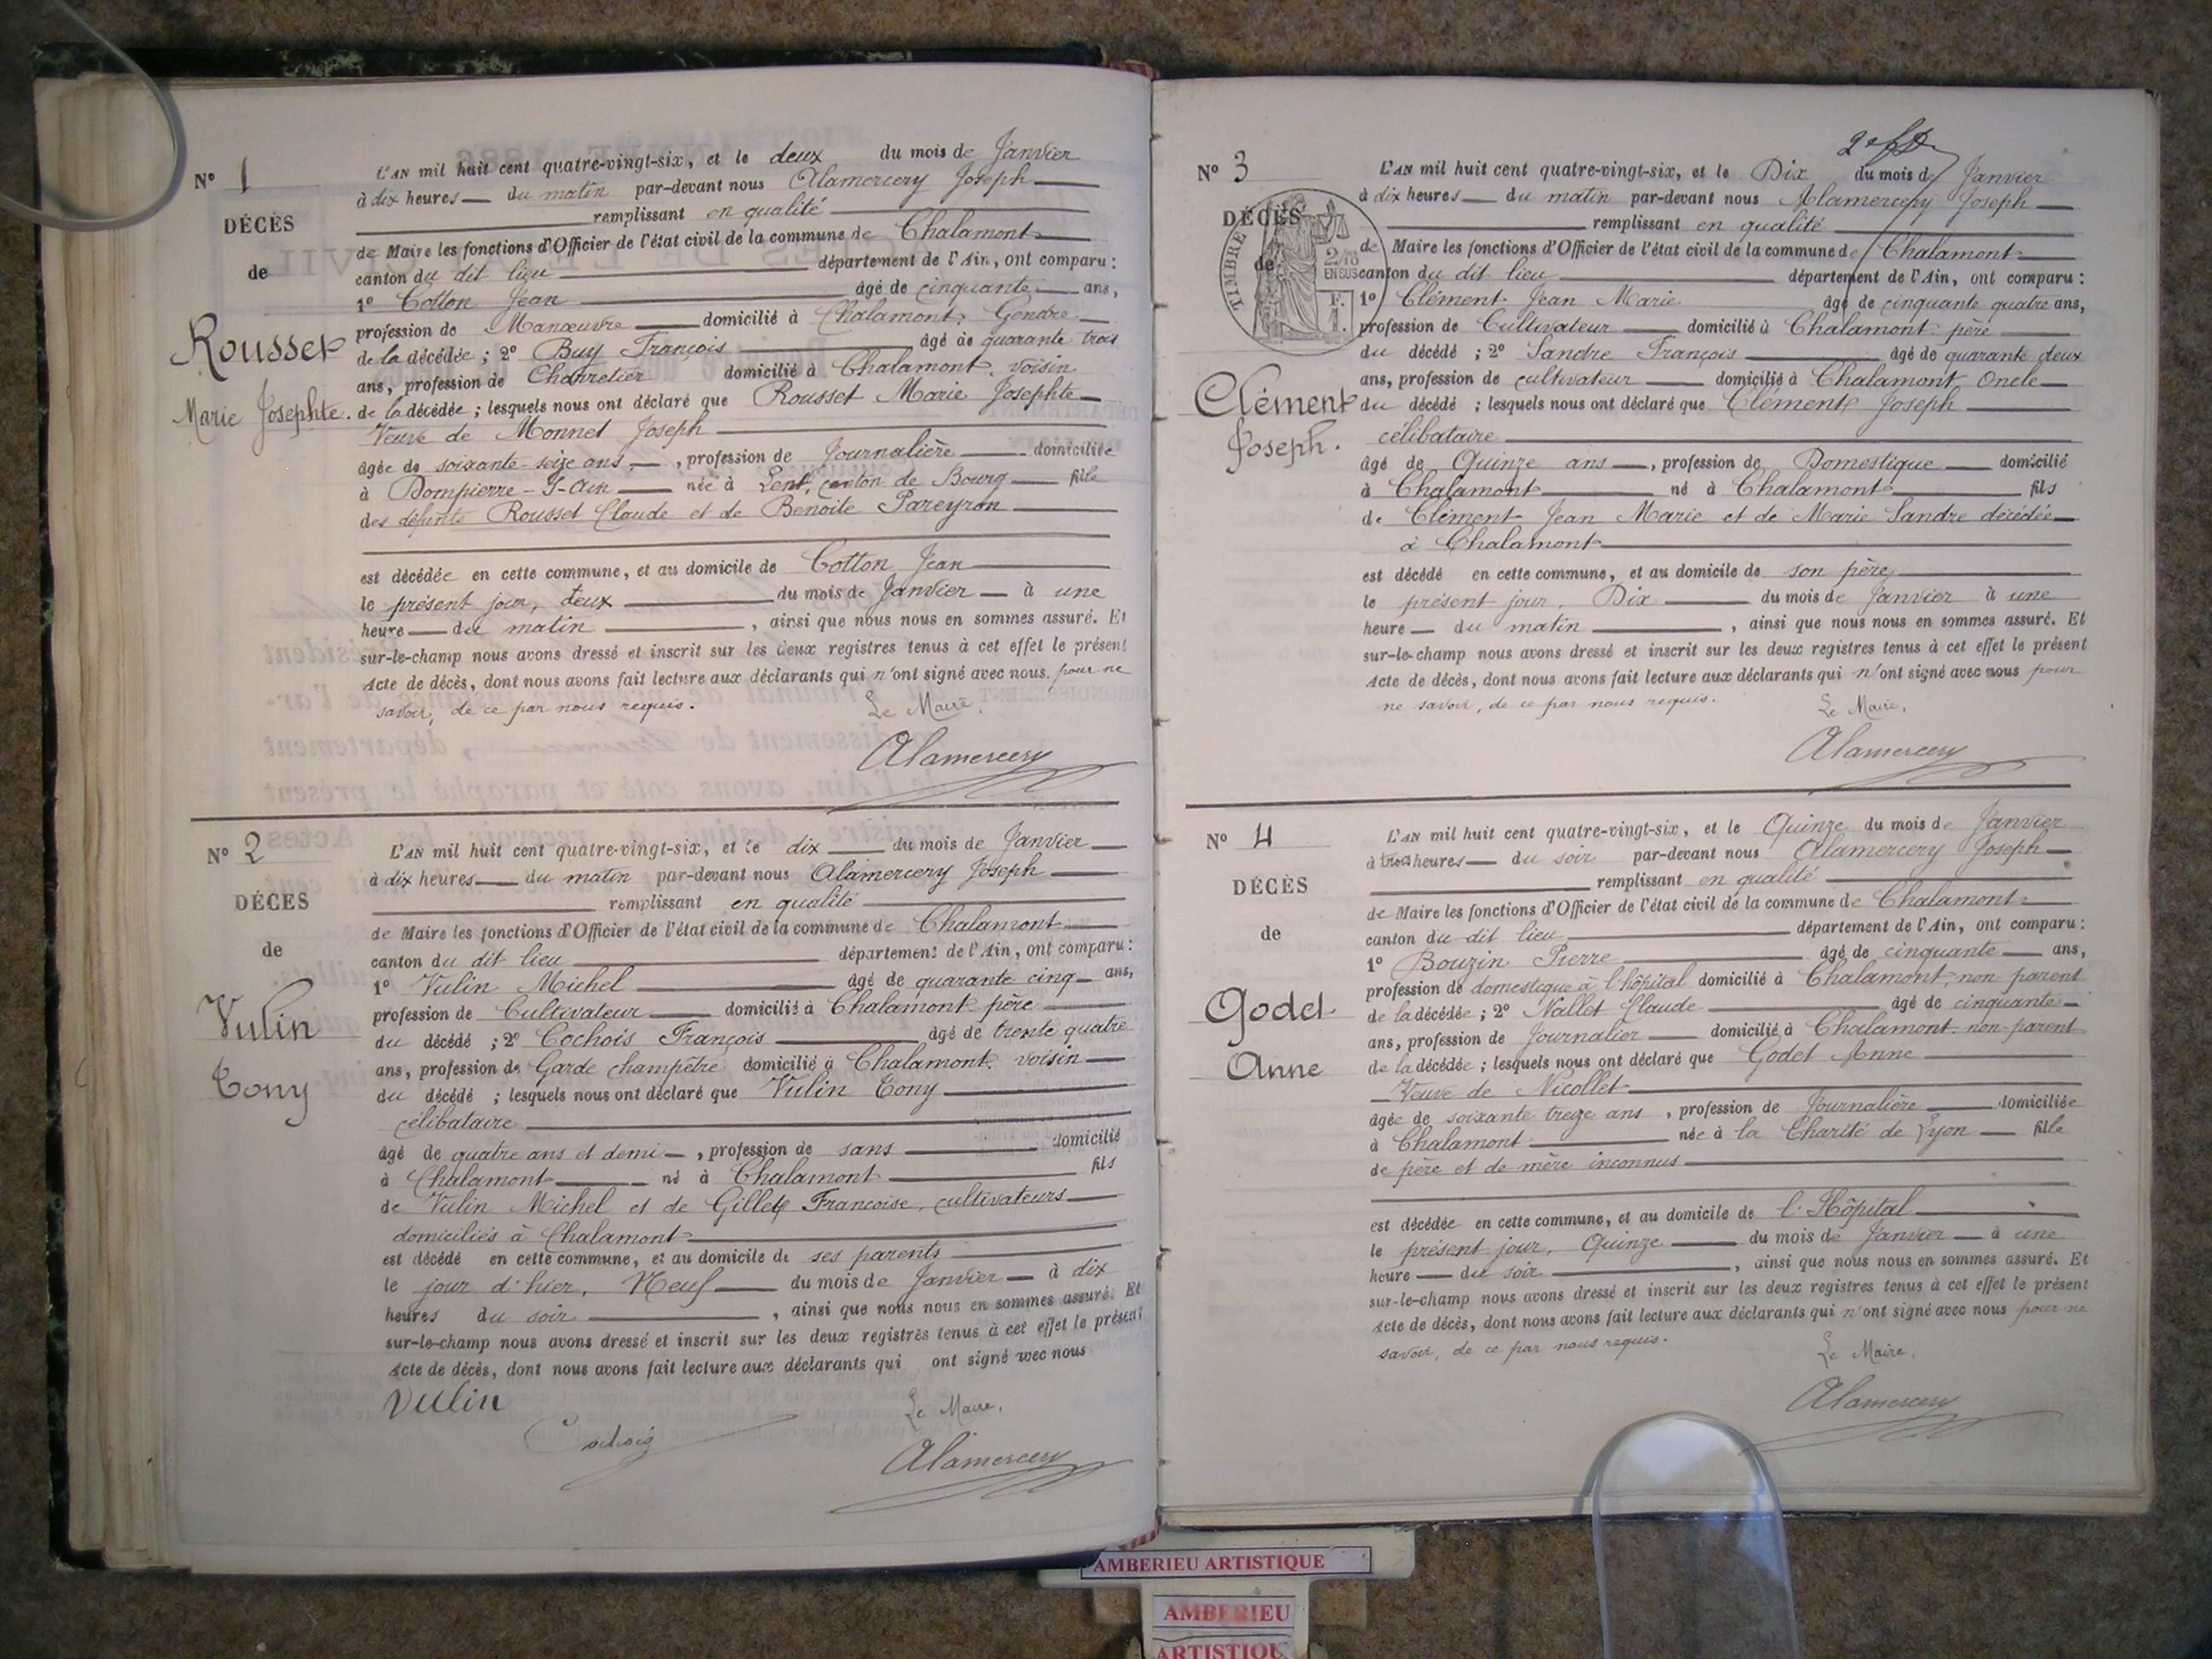 N° 1
DÉCÈS
de
Rousset
Marie Josephte.
L'AN mil huit cent quatre-vingt-six, et le deux du mois de Janvier
à dix heures du matin par-devant nous Alamercery Joseph
remplissant en qualité
de Maire les fonctions d'Officier de l'état civil de la commune de Chalamont
canton du dit lieu département de l'Ain, ont comparu :
1° Cotton Jean âgé de cinquante ans,
profession de Manœuvre domicilié à Chalamont, Gendre
de la décédée ; 2° Buy François âgé de quarante trois
ans, profession de Charretier domicilié à Chalamont, voisin
de la décédée ; lesquels nous ont déclaré que Rousset Marie Josephte
Veuve de Monnet Joseph
âgée de soixante-seize ans, profession de Journalière domiciliée
à Dompierre-S-Ain née à Lent, canton de Bourg fille
des défunts Rousset Claude et de Benoite Pareyron
est décédée en cette commune, et au domicile de Cotton Jean
le présent jour, deux du mois de Janvier à une
heure du matin, ainsi que nous nous en sommes assuré. Et
sur-le-champ nous avons dressé et inscrit sur les deux registres tenus à cet effet le présent
Acte de décès, dont nous avons fait lecture aux déclarants qui n'ont signé avec nous, pour ne
savoir, de ce par nous requis.
Le Maire,
Alamercery
N° 2
DÉCÈS
de
Vulin
Tony
L'AN mil huit cent quatre-vingt-six, et le dix du mois de Janvier
à dix heures du matin par-devant nous Alamercery Joseph
remplissant en qualité
de Maire les fonctions d'Officier de l'état civil de la commune de Chalamont
canton du dit lieu département de l'Ain, ont comparu :
1° Vulin Michel âgé de quarante cinq ans,
profession de Cultivateur domicilié à Chalamont père
du décédé ; 2° Cochois François âgé de trente quatre
ans, profession de Garde champêtre domicilié à Chalamont, voisin
du décédé ; lesquels nous ont déclaré que Vulin Tony
célibataire
âgé de quatre ans et demi, profession de sans domicilié
à Chalamont né à Chalamont fils
de Vulin Michel et de Gillet Françoise, cultivateurs
domiciliés à Chalamont
est décédé en cette commune, et au domicile de ses parents
le jour d'hier, Neuf du mois de Janvier à dix
heures du soir, ainsi que nous nous en sommes assuré. Et
sur-le-champ nous avons dressé et inscrit sur les deux registres tenus à cet effet le présent
Acte de décès, dont nous avons fait lecture aux déclarants qui ont signé avec nous
Vulin
Cochois
Le Maire,
Alamercery
N° 3
DÉCÈS
de
TIMBRE
2/10
EN SUS
Clément
Joseph.
L'AN mil huit cent quatre-vingt-six, et le Dix du mois de Janvier
à dix heures du matin par-devant nous Alamercery Joseph
remplissant en qualité
de Maire les fonctions d'Officier de l'état civil de la commune de Chalamont
canton du dit lieu département de l'Ain, ont comparu :
1° Clément Jean Marie âgé de cinquante quatre ans,
profession de Cultivateur domicilié à Chalamont père
du décédé ; 2° Sandre François âgé de quarante deux
ans, profession de cultivateur domicilié à Chalamont, Oncle
du décédé ; lesquels nous ont déclaré que Clément Joseph
célibataire
âgé de Quinze ans, profession de Domestique domicilié
à Chalamont né à Chalamont fils
de Clément Jean Marie et de Marie Sandre décédée
à Chalamont
est décédé en cette commune, et au domicile de son père
le présent jour, Dix du mois de Janvier à une
heure du matin, ainsi que nous nous en sommes assuré. Et
sur-le-champ nous avons dressé et inscrit sur les deux registres tenus à cet effet le présent
Acte de décès, dont nous avons fait lecture aux déclarants qui n'ont signé avec nous pour
ne savoir, de ce par nous requis.
Le Maire,
Alamercery
N° 4
DÉCÈS
de
Godet
Anne
L'AN mil huit cent quatre-vingt-six, et le Quinze du mois de Janvier
à trois heures du soir par-devant nous Alamercery Joseph
remplissant en qualité
de Maire les fonctions d'Officier de l'état civil de la commune de Chalamont
canton du dit lieu département de l'Ain, ont comparu :
1° Bouzin Pierre âgé de cinquante ans,
profession de domestique à l'hôpital domicilié à Chalamont, non parent
de la décédée ; 2° Nallet Claude âgé de cinquante
ans, profession de Journalier domicilié à Chalamont non parent
de la décédée ; lesquels nous ont déclaré que Godet Anne
Veuve de Nicollet
âgée de soixante treize ans, profession de Journalière domiciliée
à Chalamont née à la Charité de Lyon fille
de père et de mère inconnus
est décédée en cette commune, et au domicile de l'Hôpital
le présent jour, Quinze du mois de Janvier à une
heure du soir, ainsi que nous nous en sommes assuré. Et
sur-le-champ nous avons dressé et inscrit sur les deux registres tenus à cet effet le présent
Acte de décès, dont nous avons fait lecture aux déclarants qui n'ont signé avec nous pour ne
savoir, de ce par nous requis.
Le Maire,
Alamercery
AMBERIEU ARTISTIQUE
AMBERIEU
ARTISTIQUE